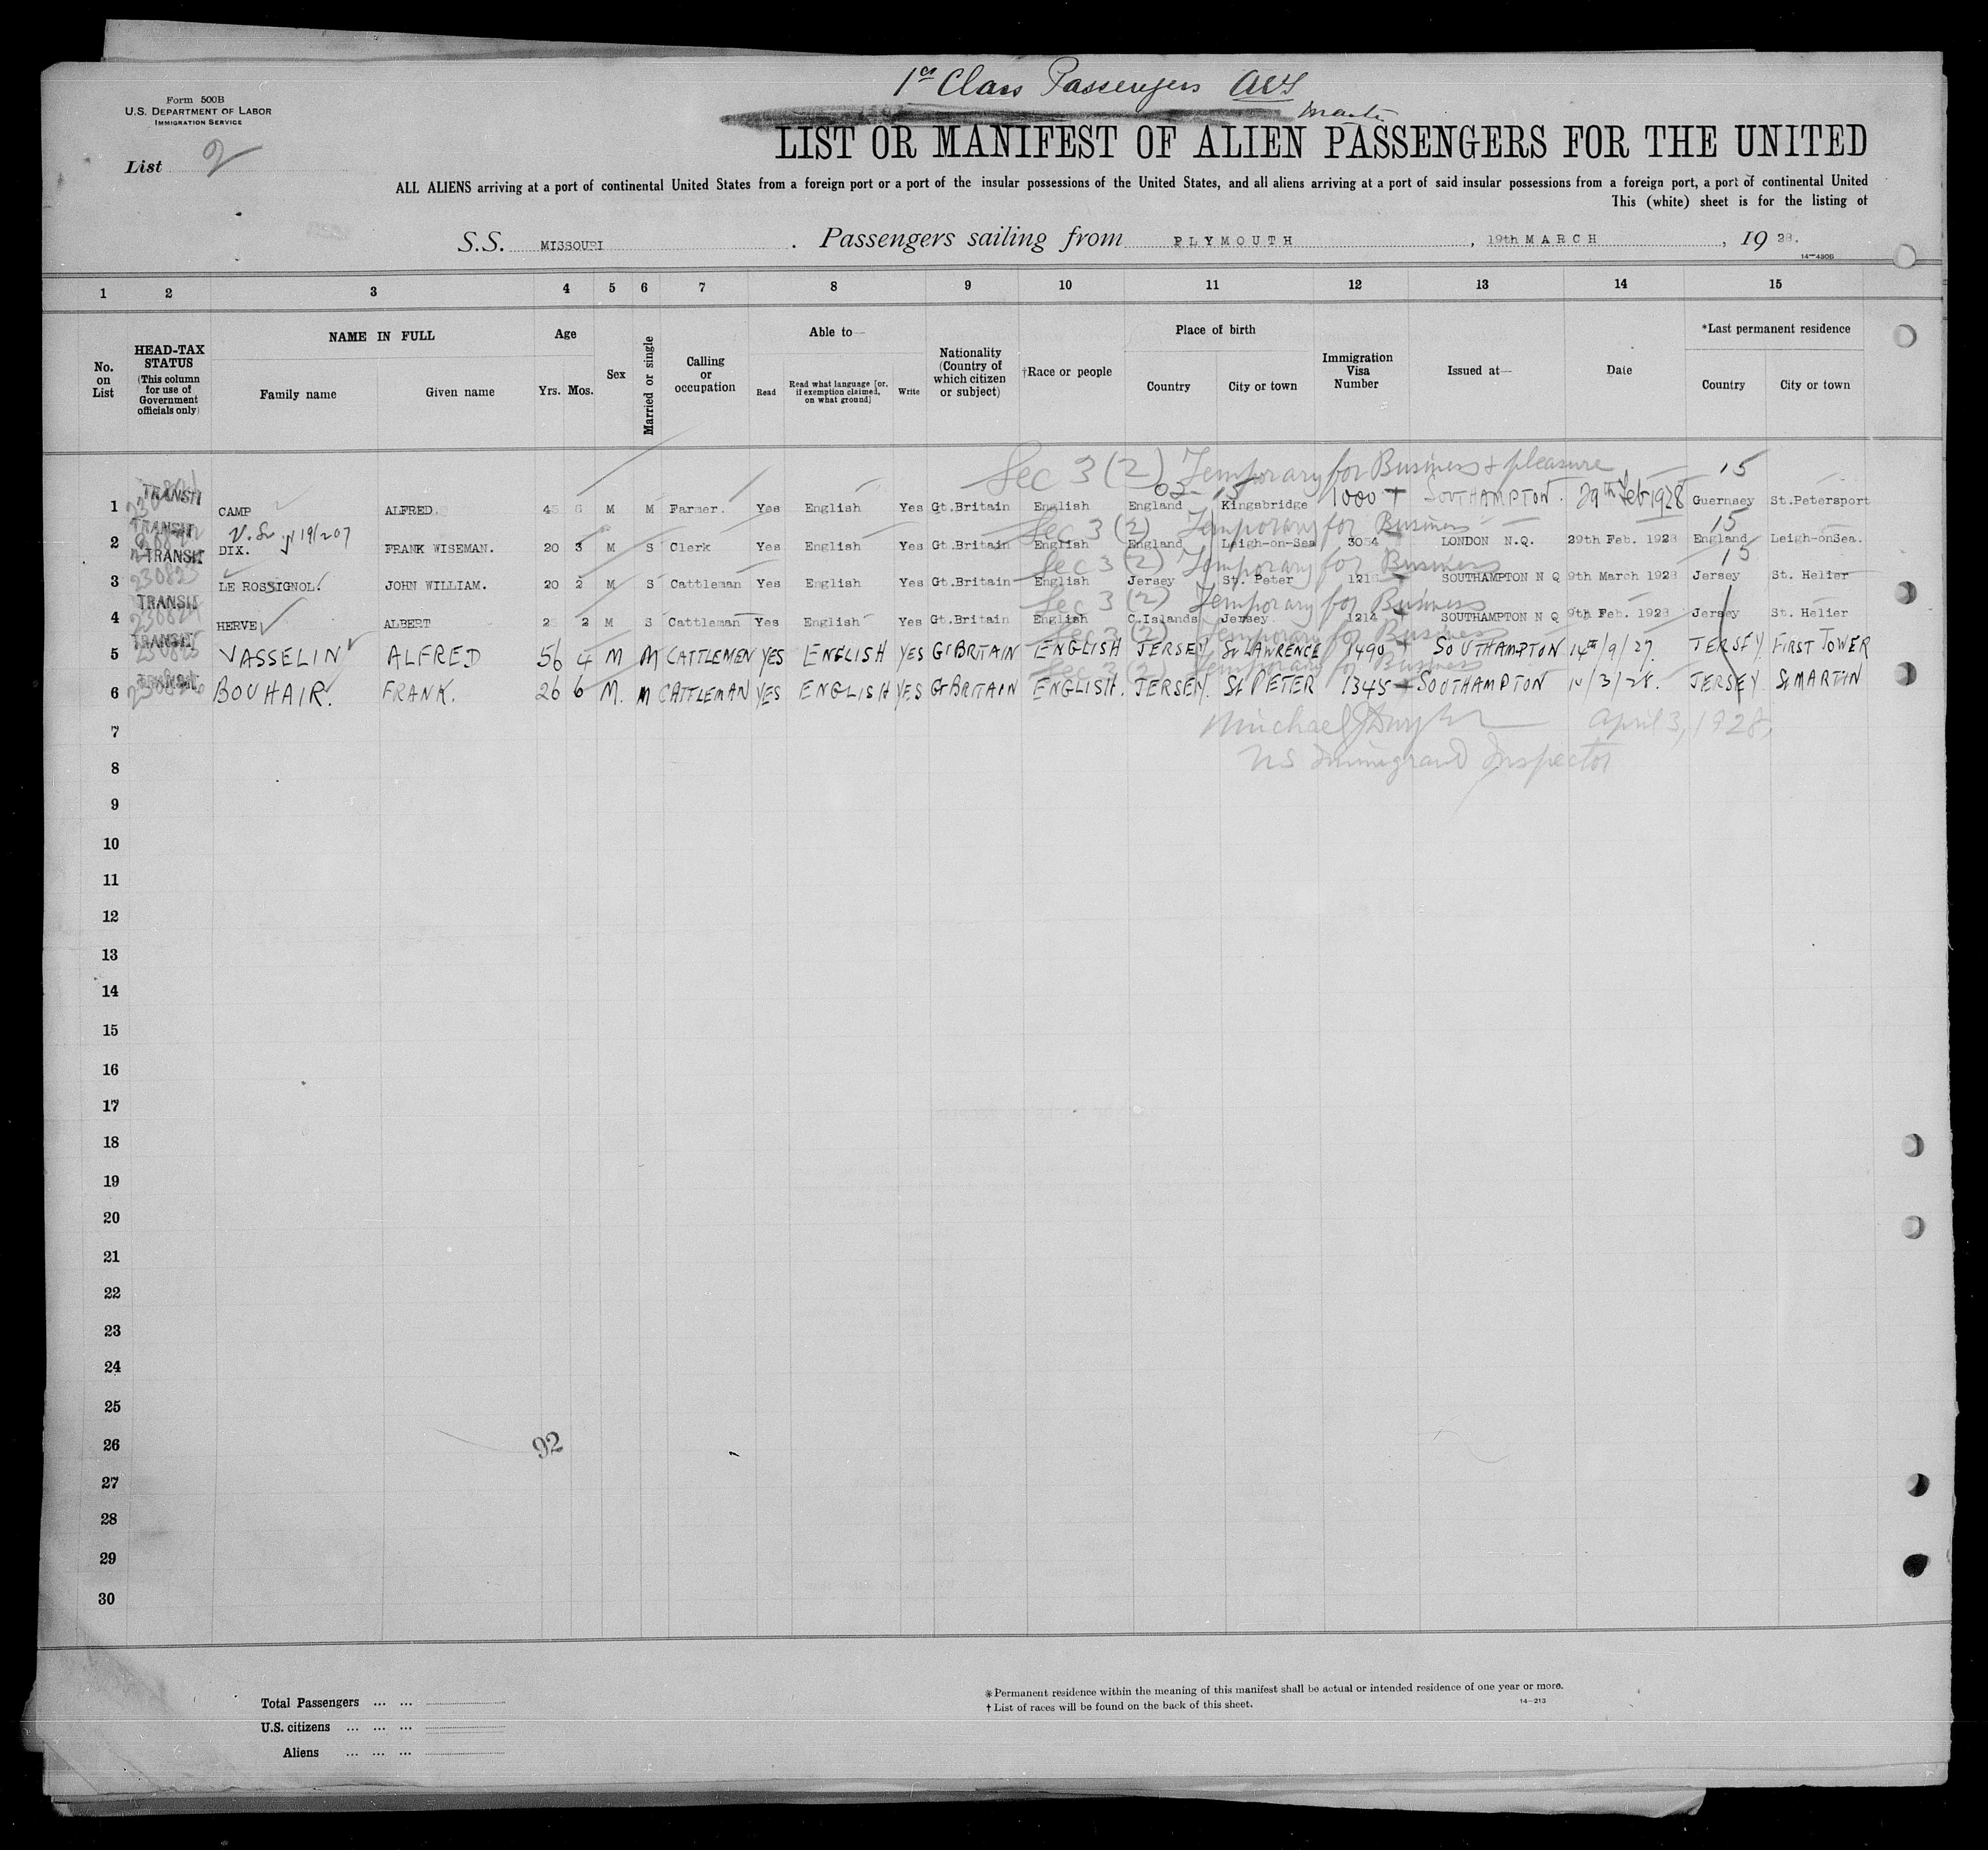 1st Class Passengers
Form 500B
U.S. DEPARTMENT OF LABOR
IMMIGRATION SERVICE
List 2
LIST OR MANIFEST OF ALIEN PASSENGERS FOR THE UNITED
ALL ALIENS arriving at a port of continental United States from a foreign port or a port of the insular possessions of the United States, and all aliens arriving at a port of said insular possessions from a foreign port, a port of continental United
This (white) sheet is for the listing of
S.S. MISSOURI . Passengers sailing from PLYMOUTH , 19th MARCH , 19 28.
14—430B
1 2 3 4 5 6 7 8 9 10 11 12 13 14 15
No. on List
HEAD-TAX STATUS (This column for use of Government officials only)
NAME IN FULL
Family name Given name
Age
Yrs. Mos.
Sex
Married or single
Calling or occupation
Able to—
Read Read what language [or, if exemption claimed, on what ground] Write
Nationality (Country of which citizen or subject)
†Race or people
Place of birth
Country City or town
Immigration Visa Number
Issued at—
Date
*Last permanent residence
Country City or town
Sec 3 (2) Temporary for Business & pleasure 15
1 TRANSIT CAMP ALFRED. 45 6 M M Farmer. Yes English Yes Gt.Britain English England Kingsbridge 1000 SOUTHAMPTON. 29th Feb 1928 Guernsey St.Petersport
Sec 3 (2) Temporary for Business 15
2 TRANSIT DIX. FRANK WISEMAN. 20 3 M S Clerk Yes English Yes Gt.Britain English England Leigh-on-Sea 3054 LONDON N.Q. 29th Feb. 1928 England Leigh-onSea.
Sec 3 (2) Temporary for Business 15
3 TRANSIT 230823 LE ROSSIGNOL. JOHN WILLIAM. 20 2 M S Cattleman Yes English Yes Gt.Britain English Jersey St. Peter SOUTHAMPTON N Q 9th March 1928 Jersey St. Helier
Sec 3 (2) Temporary for Business
4 TRANSIT 230824 HERVE ALBERT 25 2 M S Cattleman Yes English Yes Gt.Britain English C.Islands Jersey. 1214 SOUTHAMPTON N Q 9th Feb. 1928 Jersey St. Helier
Sec 3 (2) Temporary for Business
5 TRANSIT 230825 VASSELIN ALFRED 56 4 M M CATTLEMEN YES ENGLISH YES Gt BRITAIN ENGLISH JERSEY St LAWRENCE 1490 SOUTHAMPTON 14th/9/27. JERSEY. FIRST TOWER
Sec 3 (2) Temporary for Business
6 TRANSIT 230826 BOUHAIR. FRANK. 26 6 M. M CATTLEMAN YES ENGLISH YES Gt BRITAIN ENGLISH. JERSEY. St PETER 1345 SOUTHAMPTON /3/28. JERSEY St MARTIN
7 April 3, 1928,
8 US Immigrant Inspector
9
10
11
12
13
14
15
16
17
18
19
20
21
22
23
24
25
26 92
27
28
29
30
Total Passengers ... ...
U.S. citizens ... ... ...
Aliens ... ... ...
*Permanent residence within the meaning of this manifest shall be actual or intended residence of one year or more.
†List of races will be found on the back of this sheet.
14—213